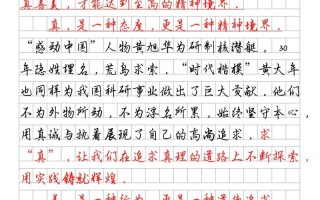 真善美，才能达到至高的精神境界。
真，是一种态度，更是一种精神境界。
“感动中国”人物黄旭华为研制核潜艇，30
年隐姓埋名，荒岛求索，“时代楷模”黄大年
也同样为我国科研事业做出了巨大贡献。他们
不为外物所动，不为浮名所累，始终坚守本心，
用真诚与执着展现了自己的高尚追求。求
“真”，让我们在追求真理的道路上不断探索，
用实践铸就辉煌。